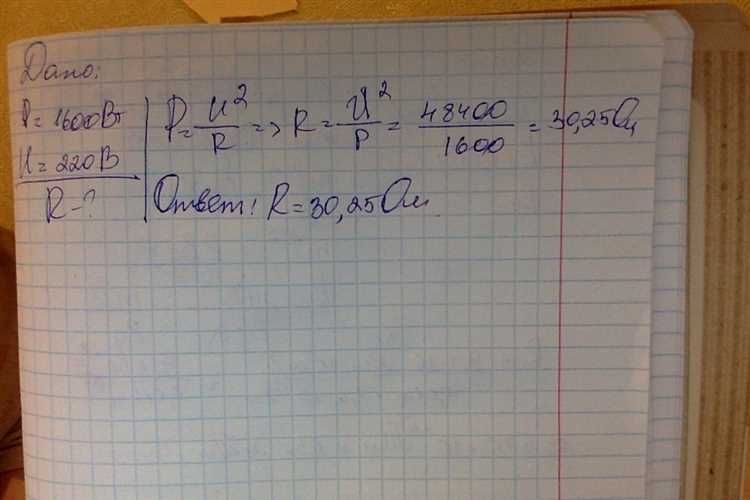 Дано:
P = 1600 Вт
U = 220 В
R - ?
P = U²/R => R = U²/P = 48400/1600 = 30,25 Ом
Ответ: R = 30,25 Ом